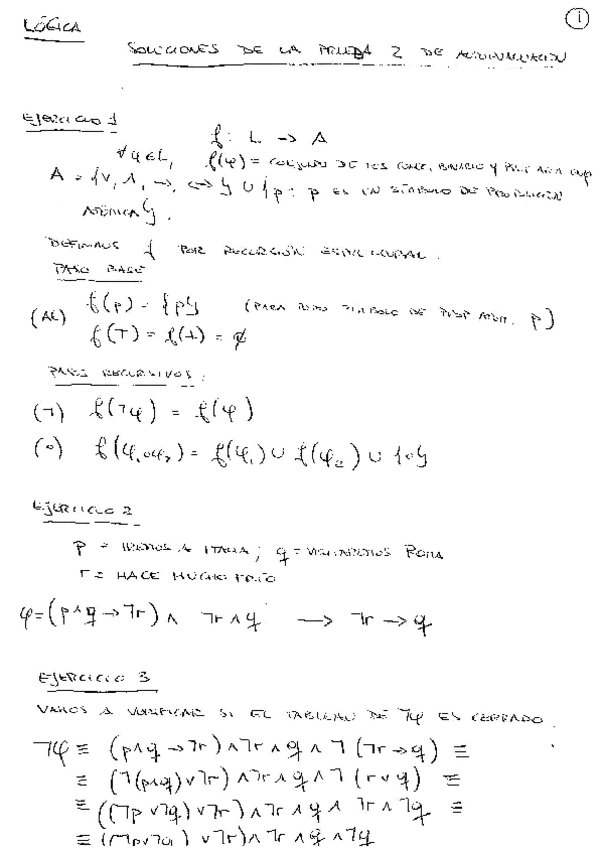 LÓGICA
1
SOLUCIONES DE LA PRUEBA 2 DE AUTOEVALUACIÓN
EJERCICIO 1
f: L → A
∀φ∈L, f(φ) = CONJUNTO DE BINARIO Y
A = {∨, ∧, →, ↔} ∪ {p: p ES UN SÍMBOLO DE PROPOSICIÓN
ATÓMICA}.
DEFINIMOS f POR RECURSIÓN ESTRUCTURAL.
PASO BASE
(At) f(p) = {p} (PARA TODO SÍMBOLO DE PROP ATÓM. p)
f(⊤) = f(⊥) = ∅
PASOS RECURSIVOS:
(¬) f(¬φ) = f(φ)
(∘) f(φ₁∘φ₂) = f(φ₁) ∪ f(φ₂) ∪ {∘}
EJERCICIO 2
p = IREMOS A ITALIA; q = VISITAREMOS ROMA
r = HACE MUCHO FRÍO
φ = (p∧q → ¬r) ∧ ¬r ∧ q → ¬r → q
EJERCICIO 3
VAMOS A VERIFICAR SI EL TABLEAU DE ¬φ ES CERRADO.
¬φ ≡ (p∧q → ¬r) ∧ ¬r ∧ q ∧ ¬(¬r → q) ≡
≡ (¬(p∧q) ∨ ¬r) ∧ ¬r ∧ q ∧ ¬(r ∨ q) ≡
≡ ((¬p ∨ ¬q) ∨ ¬r) ∧ ¬r ∧ q ∧ ¬r ∧ ¬q ≡
≡ ((¬p ∨ ¬q) ∨ ¬r) ∧ ¬r ∧ q ∧ ¬q